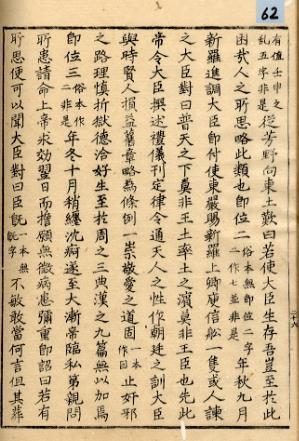 62
有值壬申之
乱五字非是 從芳野向東土歎曰若使大臣生存吾豈至於此
困哉人之所思略此類也即位二 俗本無即位二字
二作七並非是 年秋九月
新羅進調大臣即付使東嚴賜新羅上卿庾信舩一隻或人諫
之大臣對曰普天之下莫非王土率土之濱莫非王臣也先此
帝令大臣撰述禮儀刊定律令通天人之性作朝廷之訓大臣
與時賢人損益舊章略為條例一崇敬愛之道固 一本
作同 止奸邪
之路理慎折獄德洽好生至於周之三典漢之九篇無以加焉
即位三 俗本作
二非是 年冬十月稍纏沈痾遂至大漸帝臨私第親問
所患請命上帝求効翌日而擔願無徵病患彌重即詔曰若有
所思便可以聞大臣對曰臣旣 一本無
旣字 不敏敢當何言但其葬